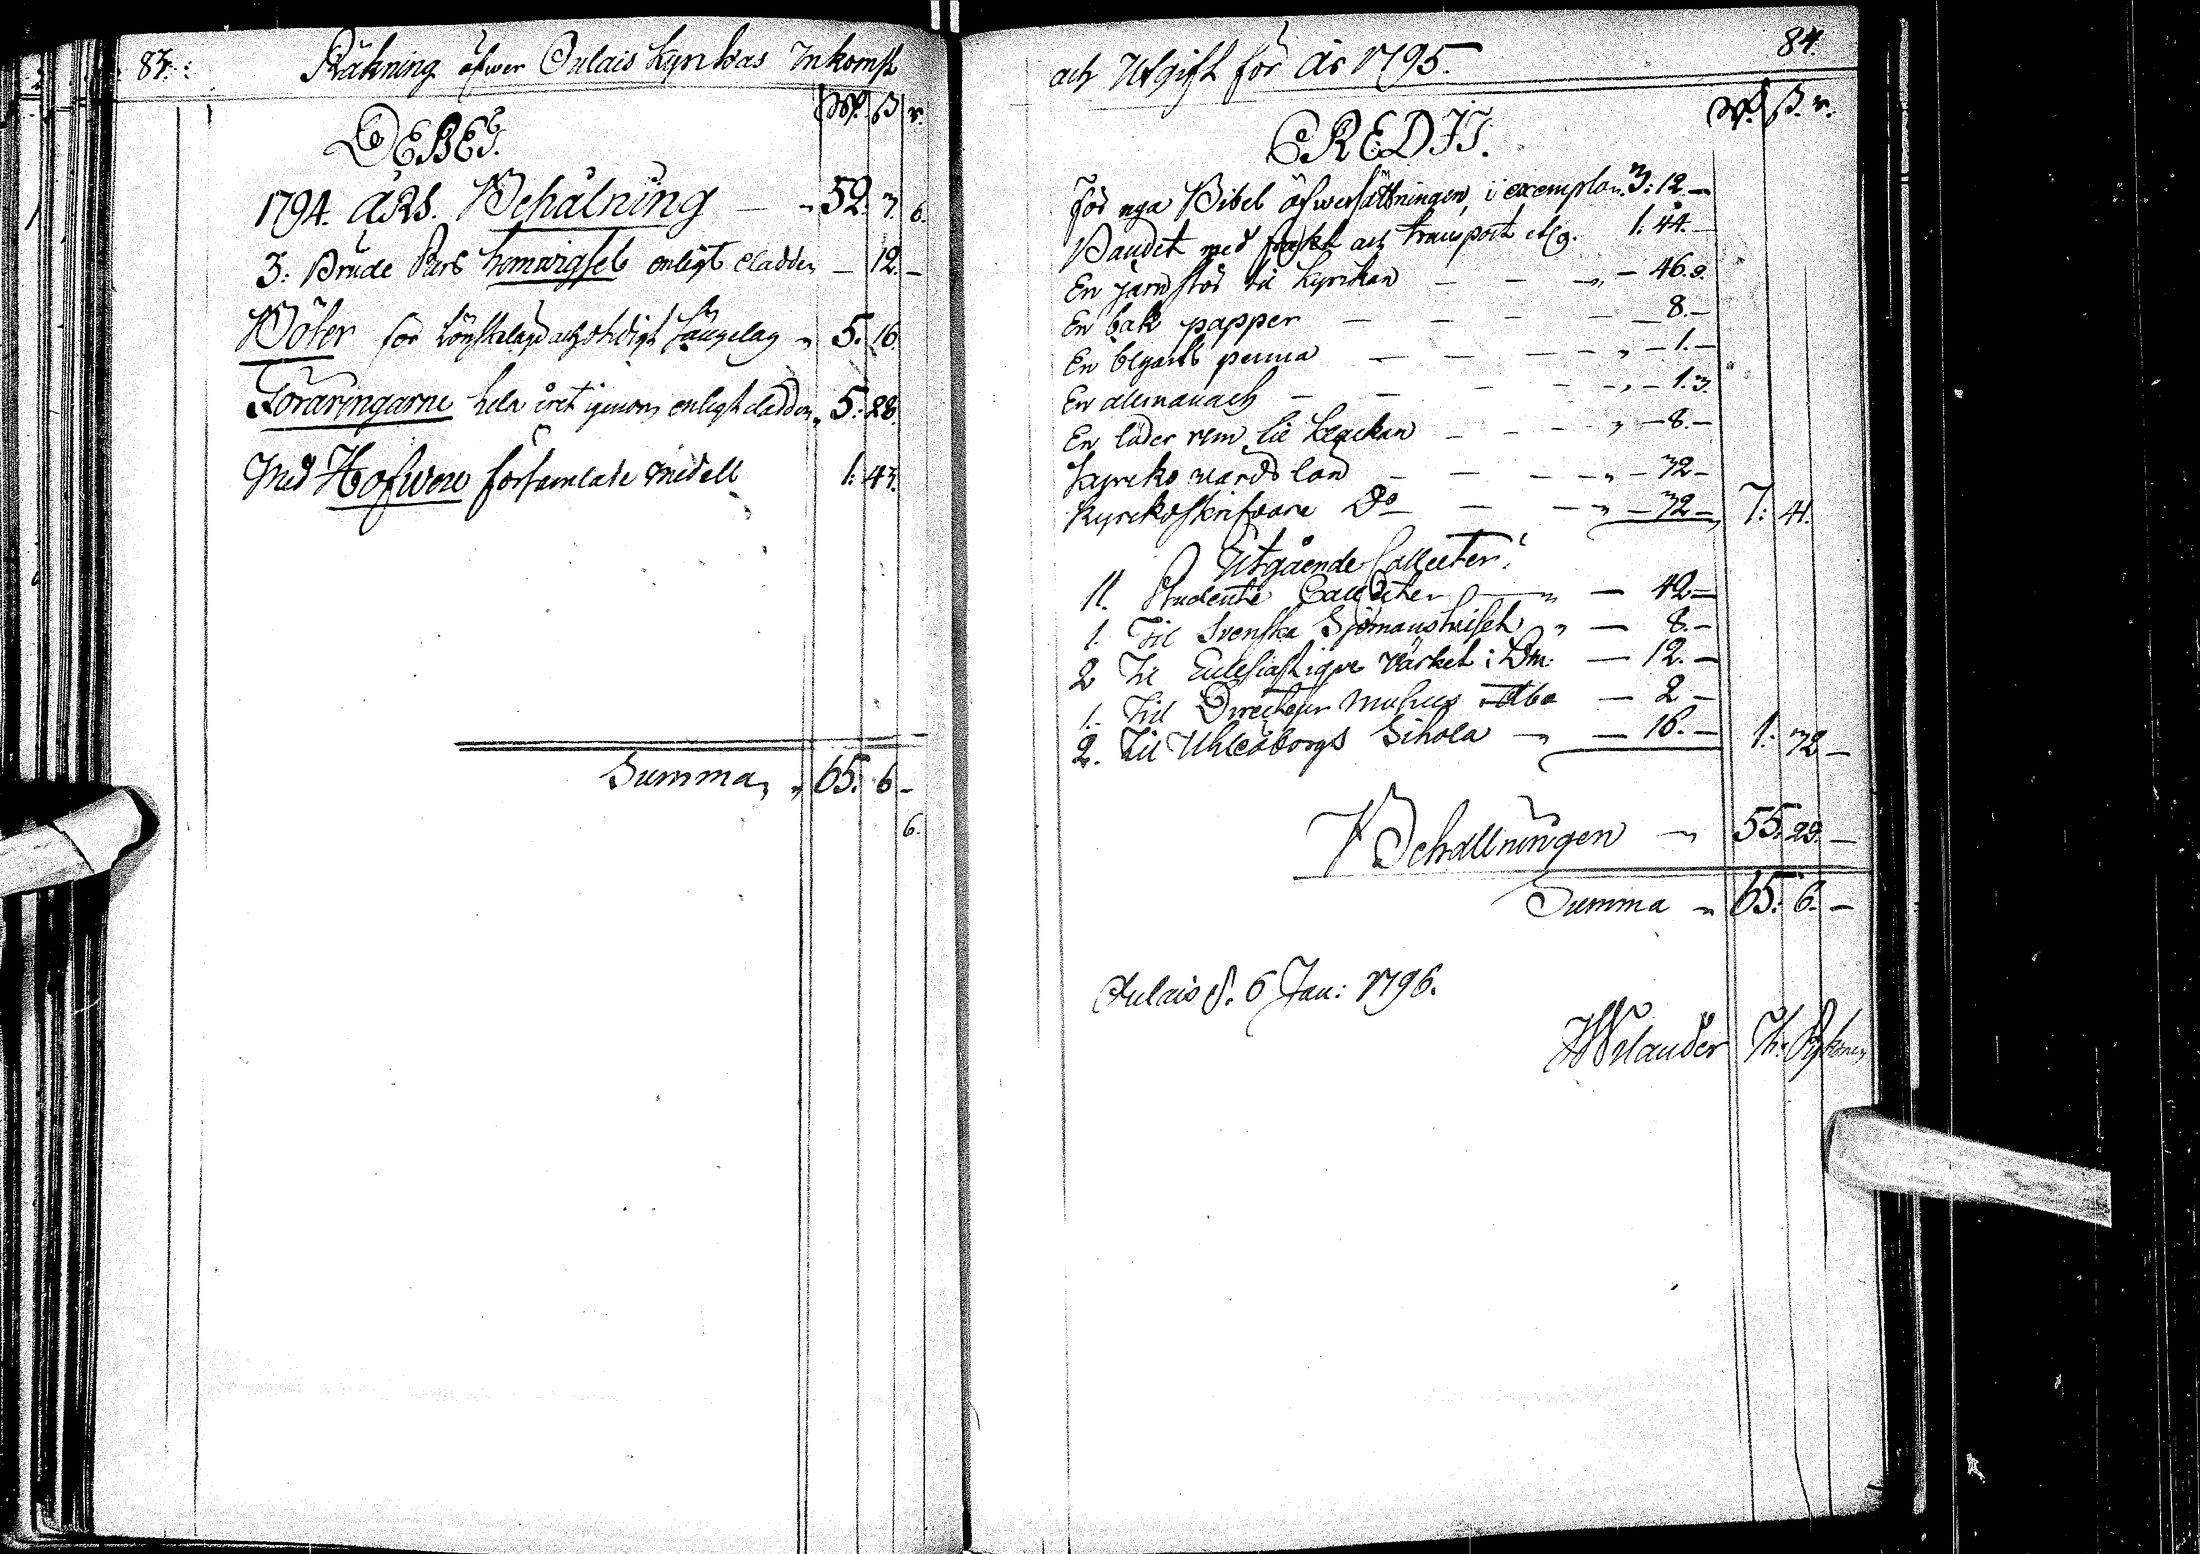 83. Räkning öfwer Pulais Kyrckas Inkomst
DEBET. Rd. ß r.
1794. ÅRS. Behålning — 52. 7. 6.
3. Brude Pars hemwigsel enligt cladden — 12. —
Böter för Lönskaläge och otidigt sängelag 5. 16.
Föräringarne hela året igenom enligt cladden 5. 28.
Med Hofwen församlade medell 1. 43.
Summa 65. 6 —
6.
och Utgift för År 1795. 84.
CREDIT. Rd. ß. r.
För nya Bibel öfwersättningen, i exemplar 3: 12. —
Bandet med frackt och transport 1: 44. —
En järn stör til Kyrckan — 46. 9.
En bok papper — 8. —
En penna — 1. —
En almanach — 1. 3
En läder rem til klackan — 8. —
Kyrcko wärds lön — 32 —
Kyrckoskrifvare Do — 32 — 7: 41.
Utgående Collecter.
11. Studente Collecter — 42 —
1. Til Svenska Sjömanshuset — 8. —
2 Til Ecclesiastique värket i Dm. — 12. —
1. Til Directeur Musicus — 2 —
2. Til Uhleåborgs Schola — 16. — 1: 32 —
Behållningen 55. 29. —
Summa 65. 6. —
Pulais d. 6 Jan: 1796.